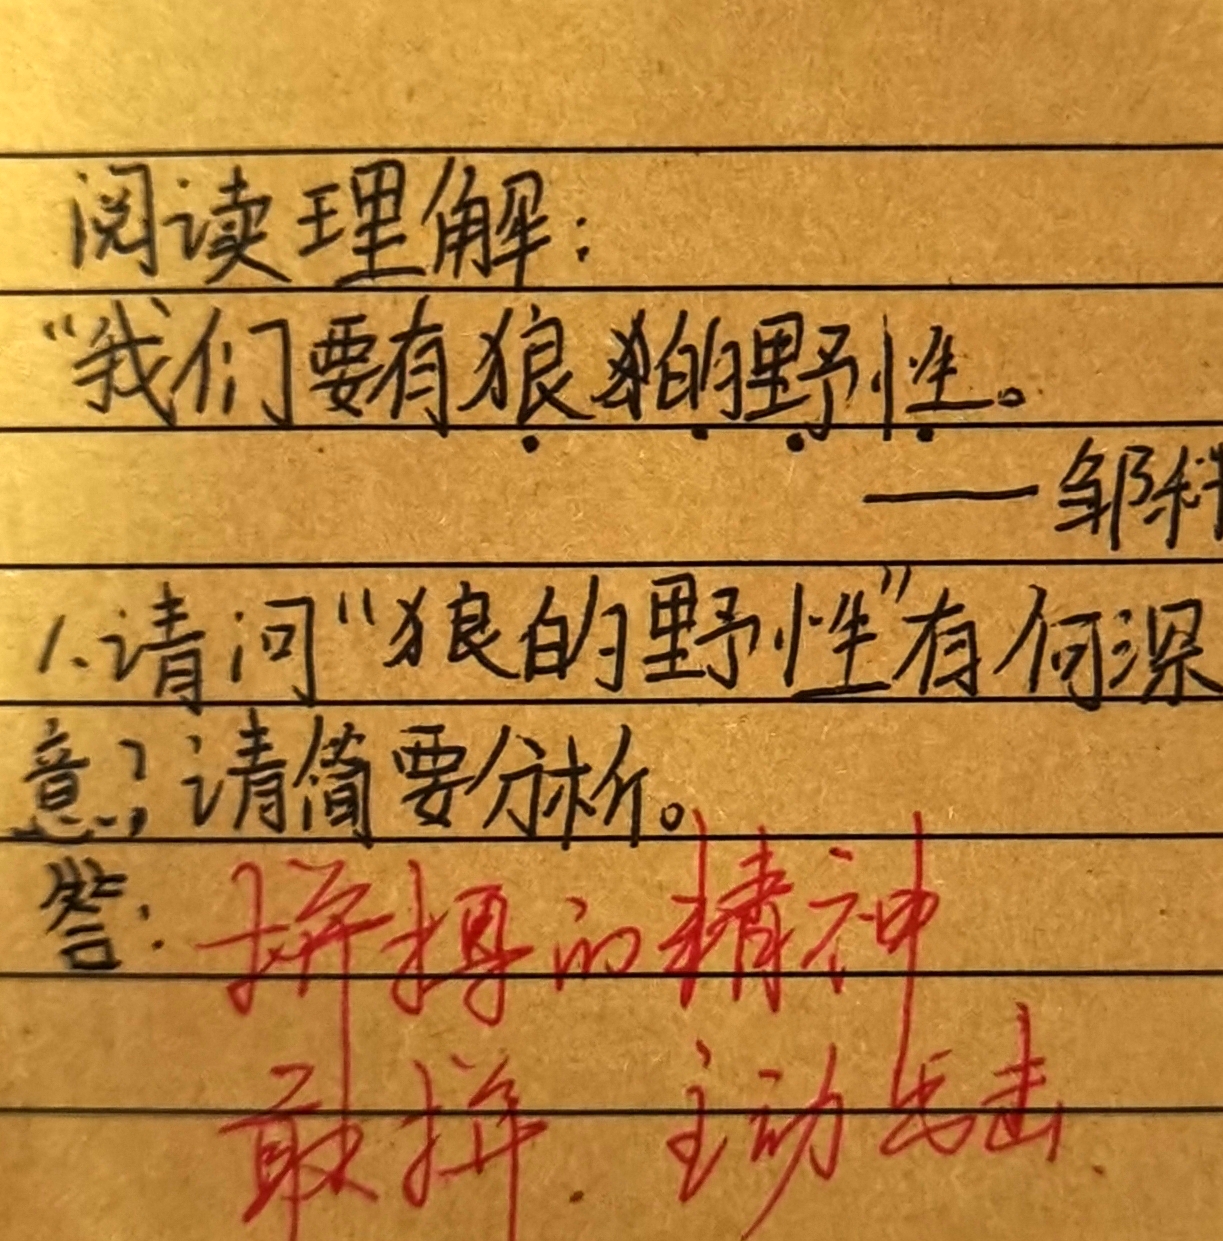 阅读理解:
“我们要有狼的野性。
——邹
1.请问“狼的野性”有何深
意?请简要分析。
答:拼搏的精神
敢拼.主动出击.